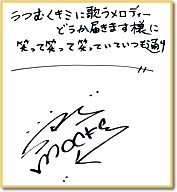 うつむくキミに歌うメロディー
どうか届きます様に
笑って笑って笑っていていつも通り
mocky